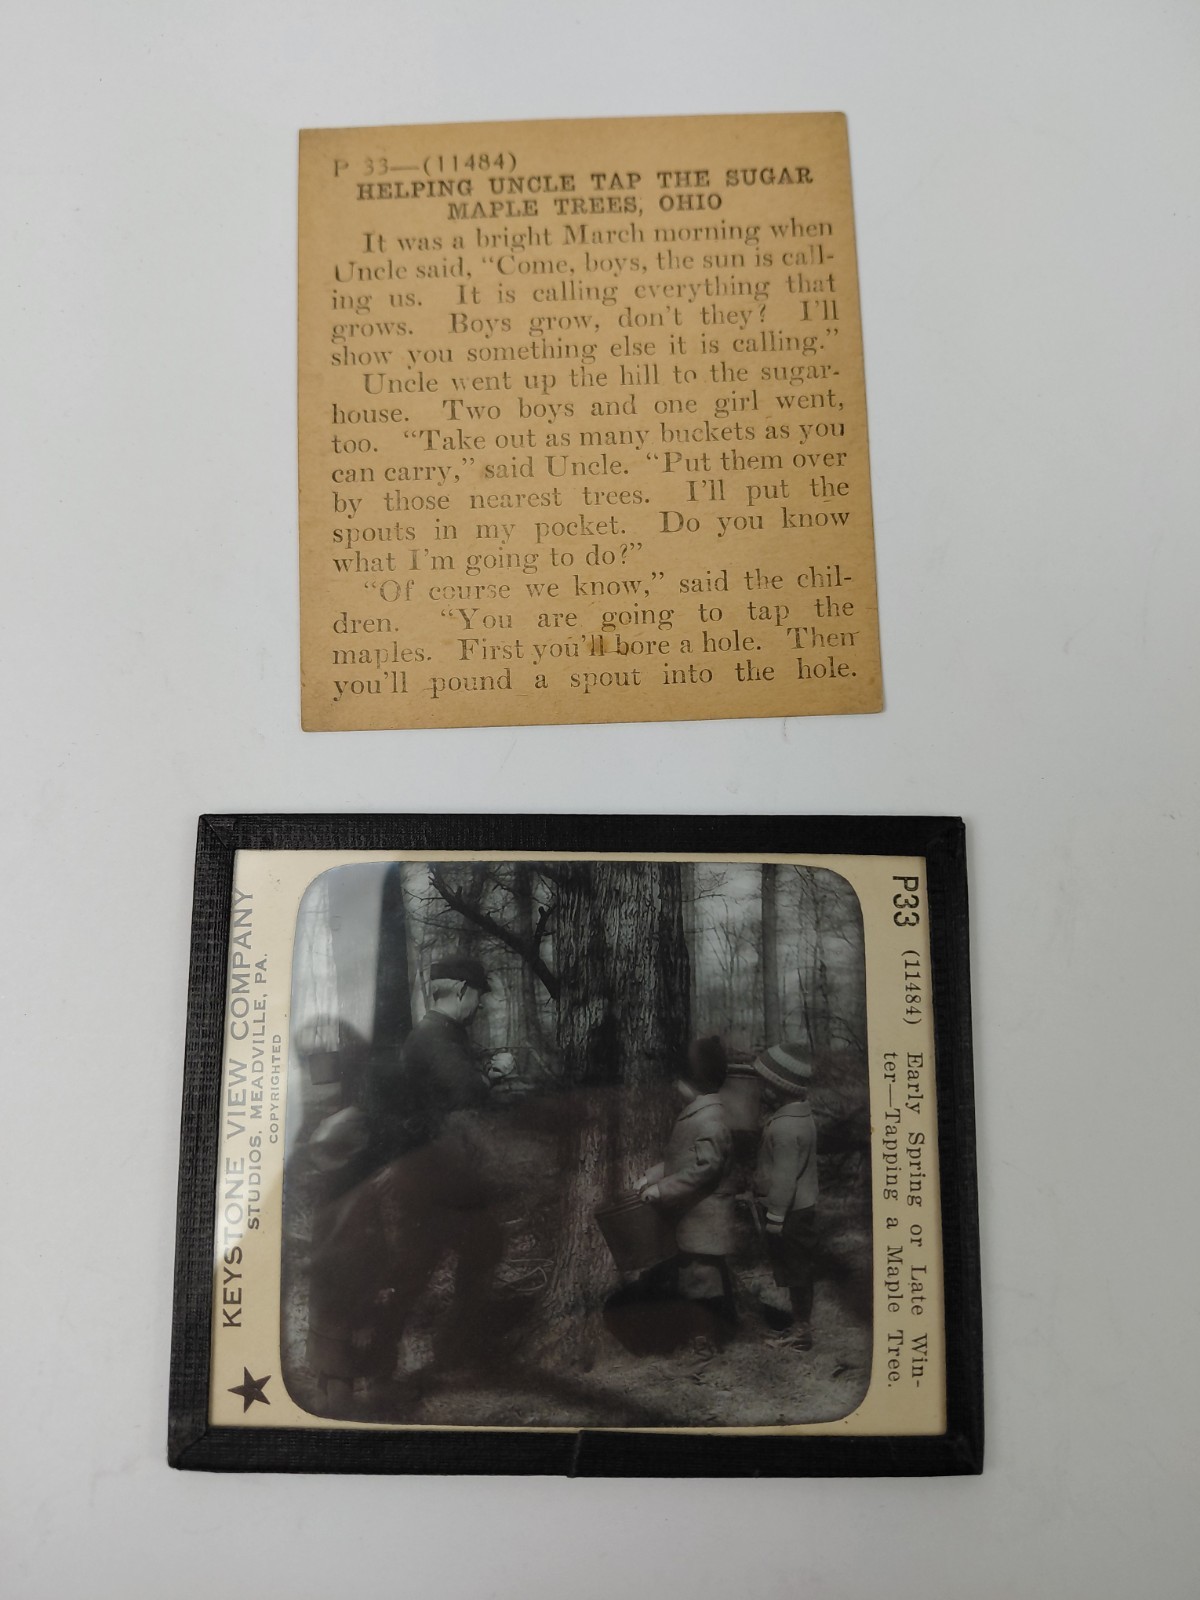 P 33—(11484)
HELPING UNCLE TAP THE SUGAR
MAPLE TREES, OHIO
It was a bright March morning when
Uncle said, “Come, boys, the sun is call-
ing us. It is calling everything that
grows. Boys grow, don't they? I'll
show you something else it is calling.”
Uncle went up the hill to the sugar-
house. Two boys and one girl went,
too. “Take out as many buckets as you
can carry,” said Uncle. “Put them over
by those nearest trees. I'll put the
spouts in my pocket. Do you know
what I'm going to do?”
“Of course we know,” said the chil-
dren. “You are going to tap the
maples. First you'll bore a hole. Then
you'll pound a spout into the hole.
KEYSTONE VIEW COMPANY
STUDIOS, MEADVILLE, PA.
COPYRIGHTED
P33 (11484) Early Spring or Late Win-
ter—Tapping a Maple Tree.